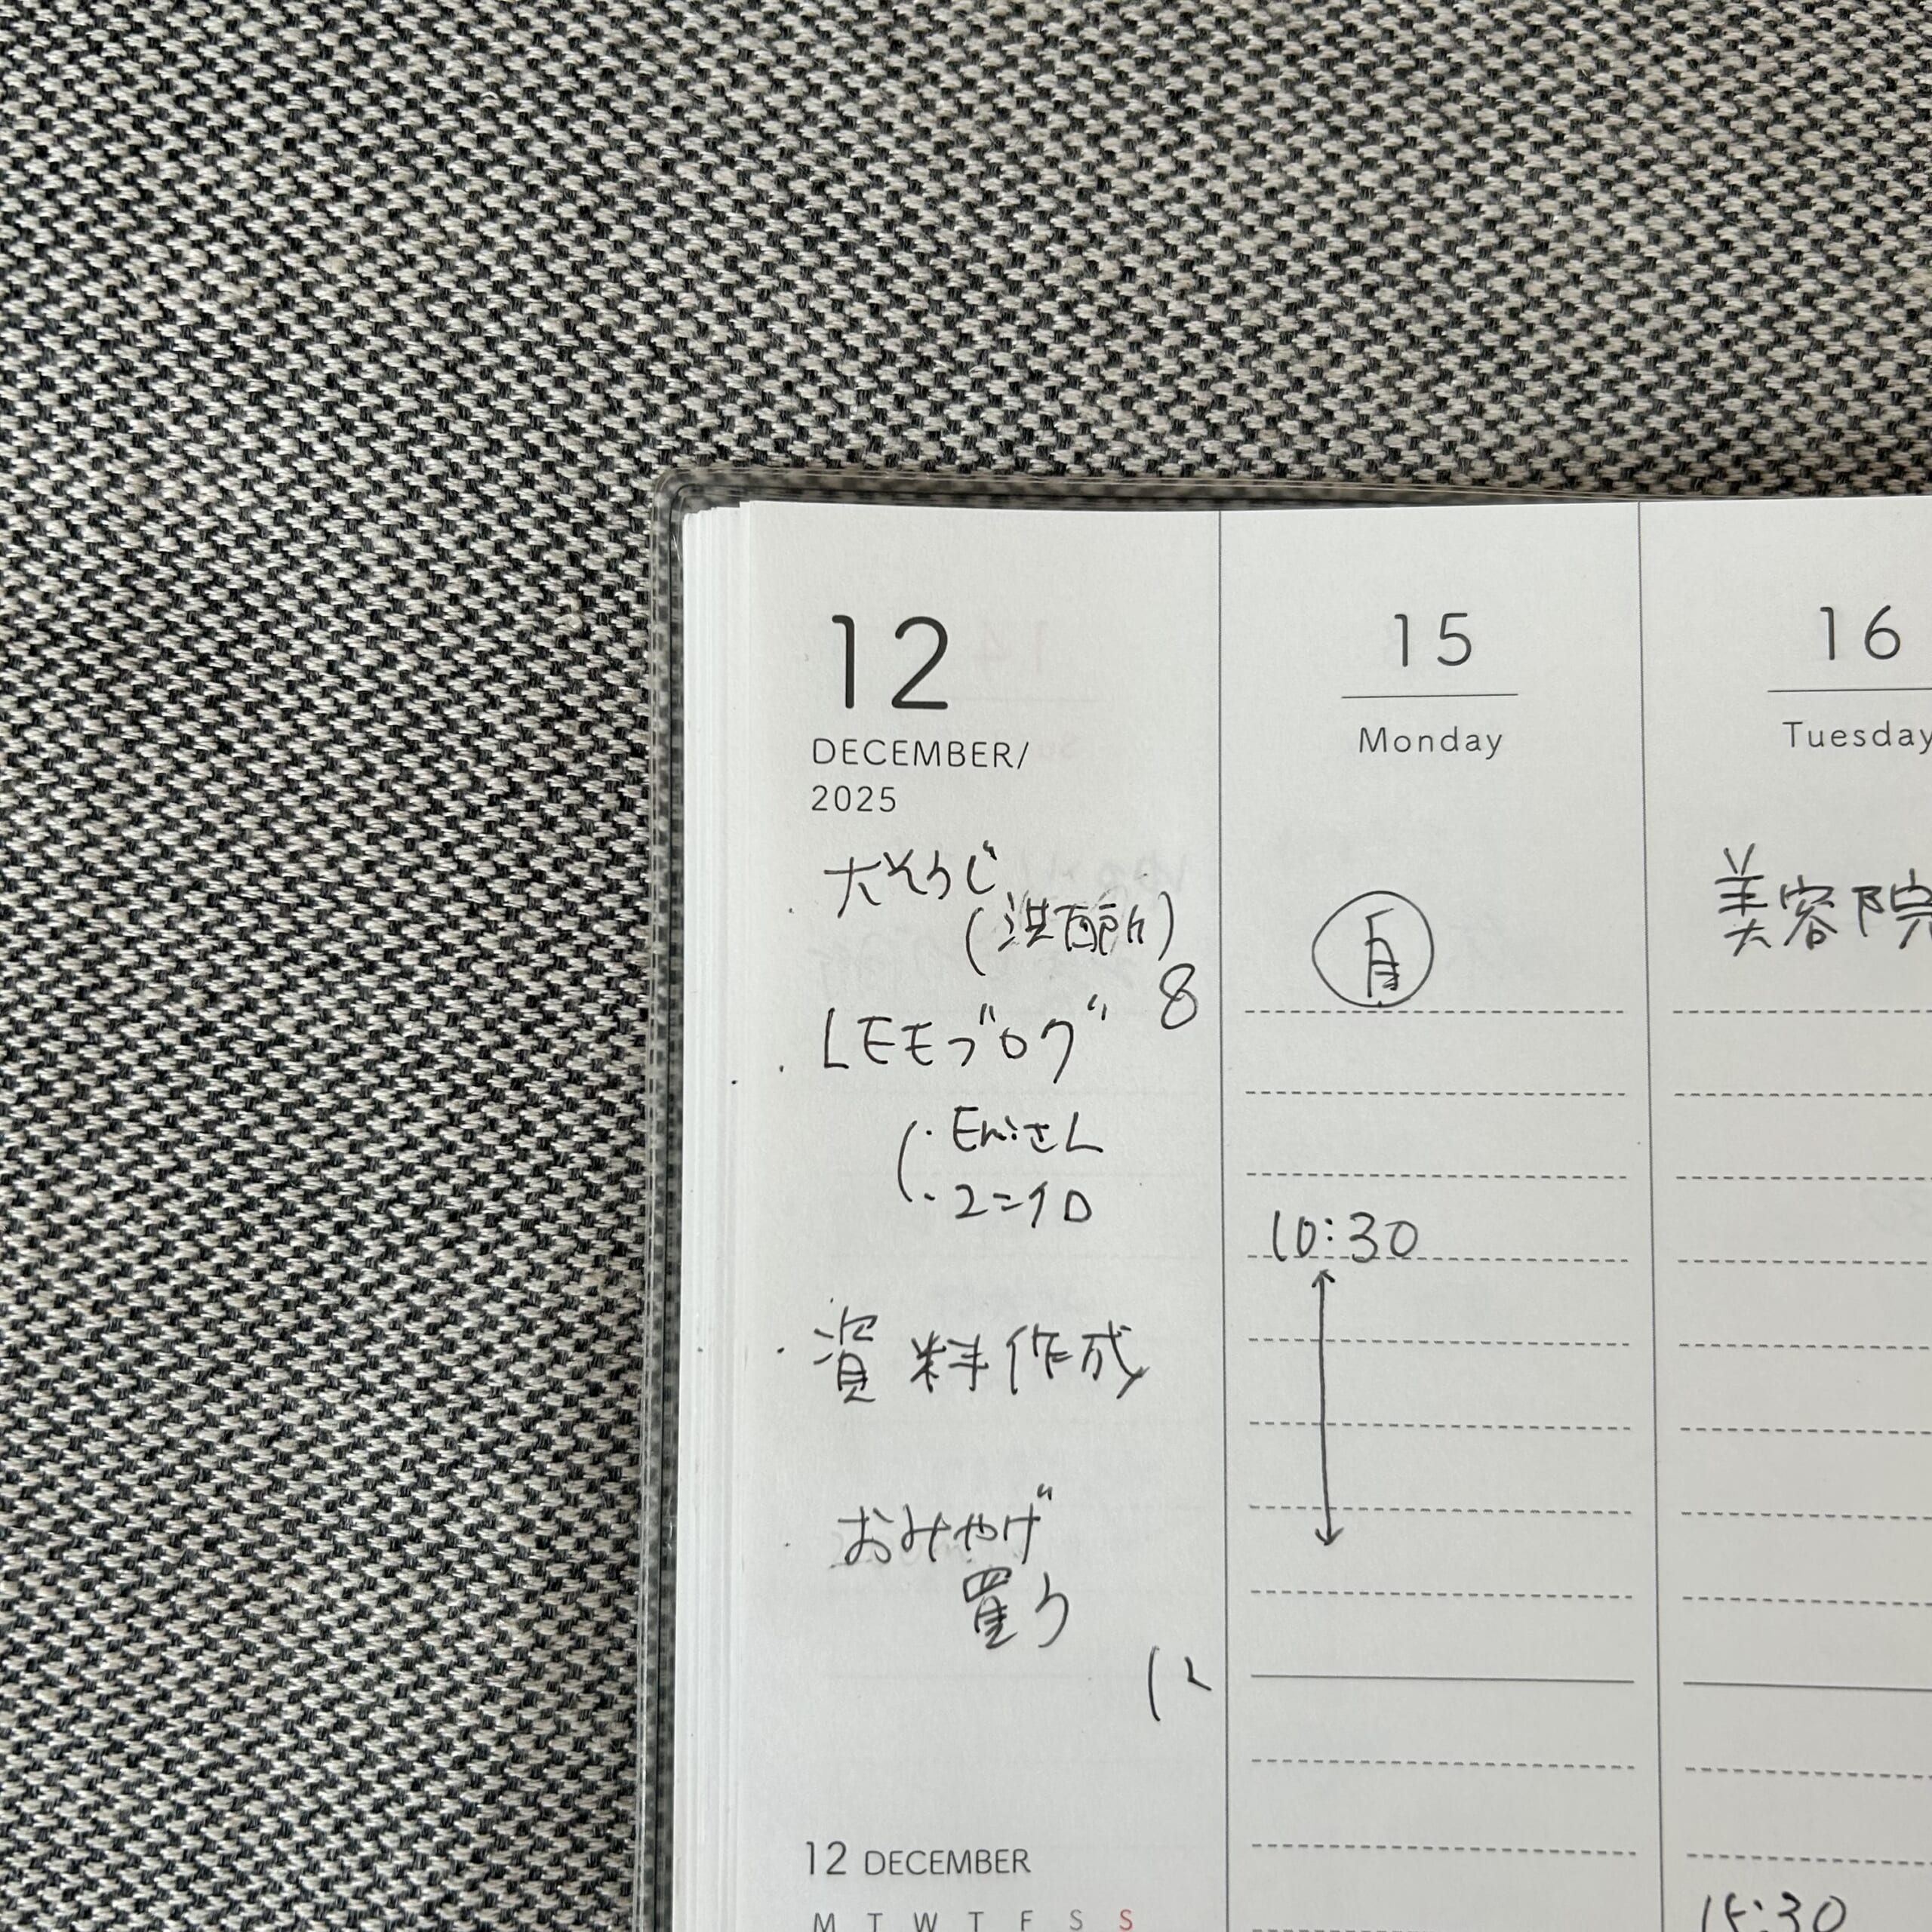 12
DECEMBER/
2025
大そうじ
(洗面所)
LEEブログ
資料作成
おみやげ
買う
8
12
12 DECEMBER
M T W T F S S
15
Monday
10:30
16
Tuesday
美容院
15:30